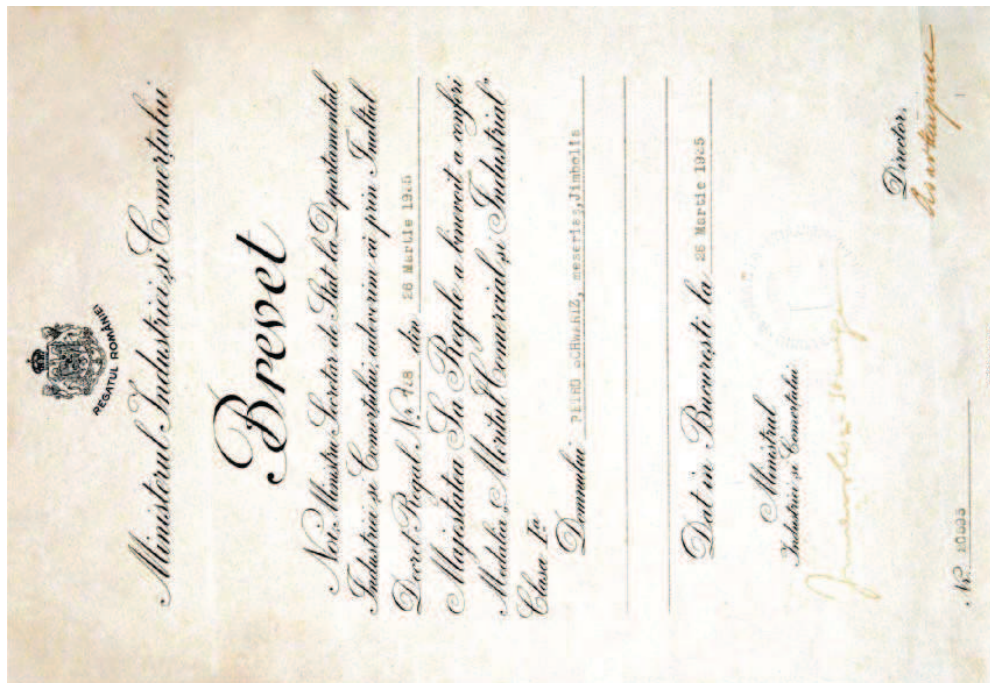 REGATUL ROMÂNIEI
Ministerul Industriei și Comerțului
Brevet
Noi, Ministru Secretar de Stat la Departamentul
Industriei și Comerțului, adeverim că prin Înaltul
Decret Regal Nr. 748 din 26 Martie 1925
Majestatea Sa Regele a binevoit a conferi
Medalia „Meritul Comercial și Industrial"
Clasa I-a
Domnului SCHWARZ, meseriaș, Jimbolia
Dat în București la 26 Martie 1925
Ministrul
Industriei și Comerțului
Director,
Nr.